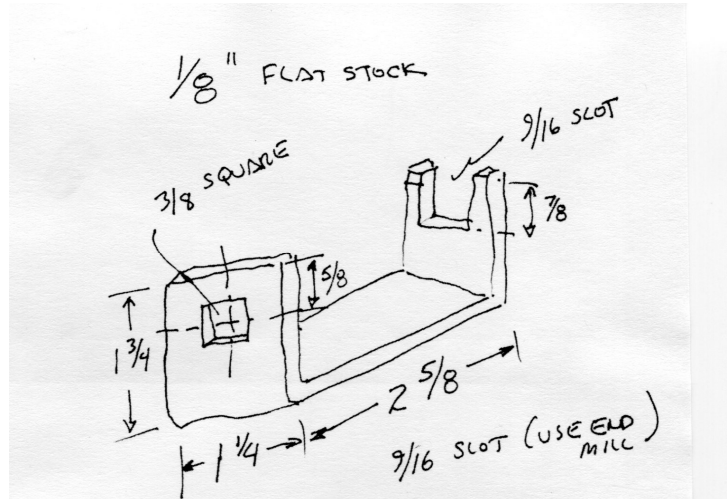 1/8" FLAT STOCK
9/16 SLOT
3/8 SQUARE
7/8
5/8
1 3/4
2 5/8
1 1/4
9/16 SLOT (USE END
MILL)